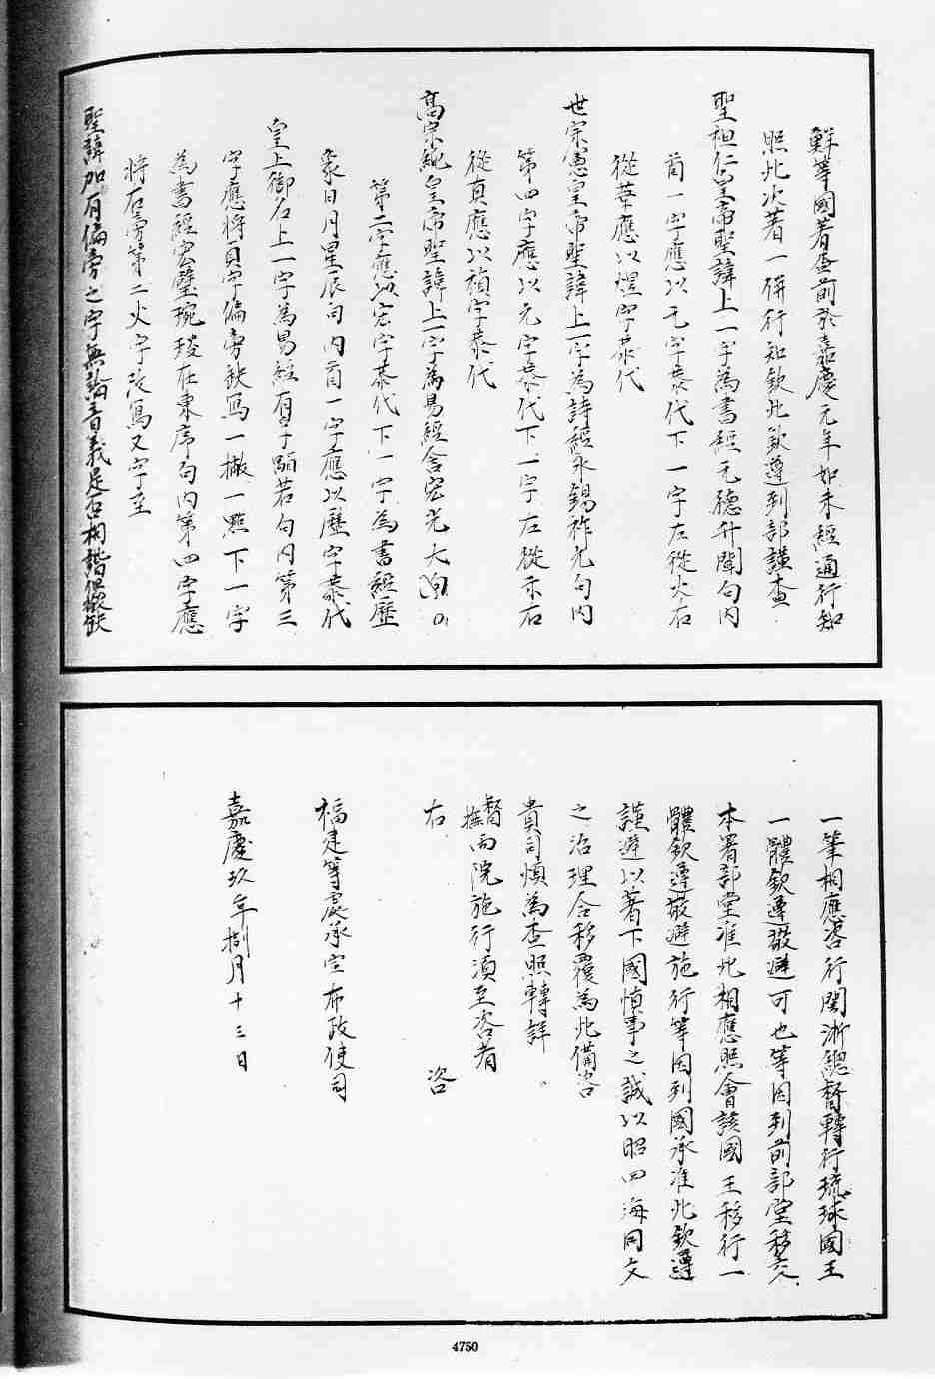 鮮等國著查前於嘉慶元年如未經通行知
照此次著一併行知欽此欽遵到部謹查
聖祖仁皇帝聖諱上一字為書經元德升聞句內
首一字應以元字恭代下一字左從火右
從華應以煜字恭代
世宗憲皇帝聖諱上一字為詩經永錫祚允句內
第四字應以允字恭代下一字左從示右
從真應以禎字恭代
高宗純皇帝聖諱上一字為易經含宏光大句內
第二字應以宏字恭代下一字為書經歷
象日月星辰句內首一字應以歷字恭代
皇上御名上一字為易經有孚顒若句內第三
字應將頁字偏旁缺寫一撇一點下一字
為書經宏璧琬琰在東序句內第四字應
將右旁第二火字改寫又字至
聖諱加有偏旁之字無論音義是否相諧俱敬缺
一筆相應咨行閩浙總督轉行琉球國王
一體欽遵敬避可也等因到前部堂移交
本署部堂准此相應照會該國王移行一
體欽遵敬避施行等因到國承准此欽遵
謹避以著下國慎事之誠以昭四海同文
之治理合移覆為此備咨
貴司慎為查照轉詳
督撫兩院施行須至咨者
右 咨
福建等處承宣布政使司
嘉慶玖年捌月十三日
4750